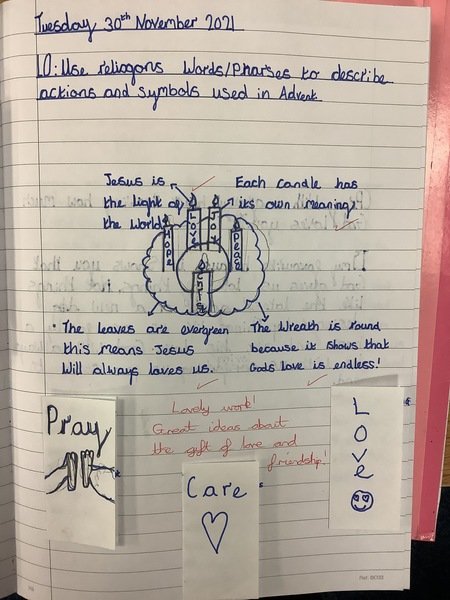 Tuesday 30th November 2021
LO: Use reliogons Words/Pharses to describe
actions and symbols used in Advent.
Jesus is
the light of
the World
Each candle has
its own meaning!
Hope
Love
Joy
Peace
Christ
• The leaves are evergreen
this means Jesus
Will always loves us.
The Wreath is round
because it shows that
Gods love is endless!
Lovely work!
Great ideas about
the gift of love and
friendship!
Pray
Care
Love